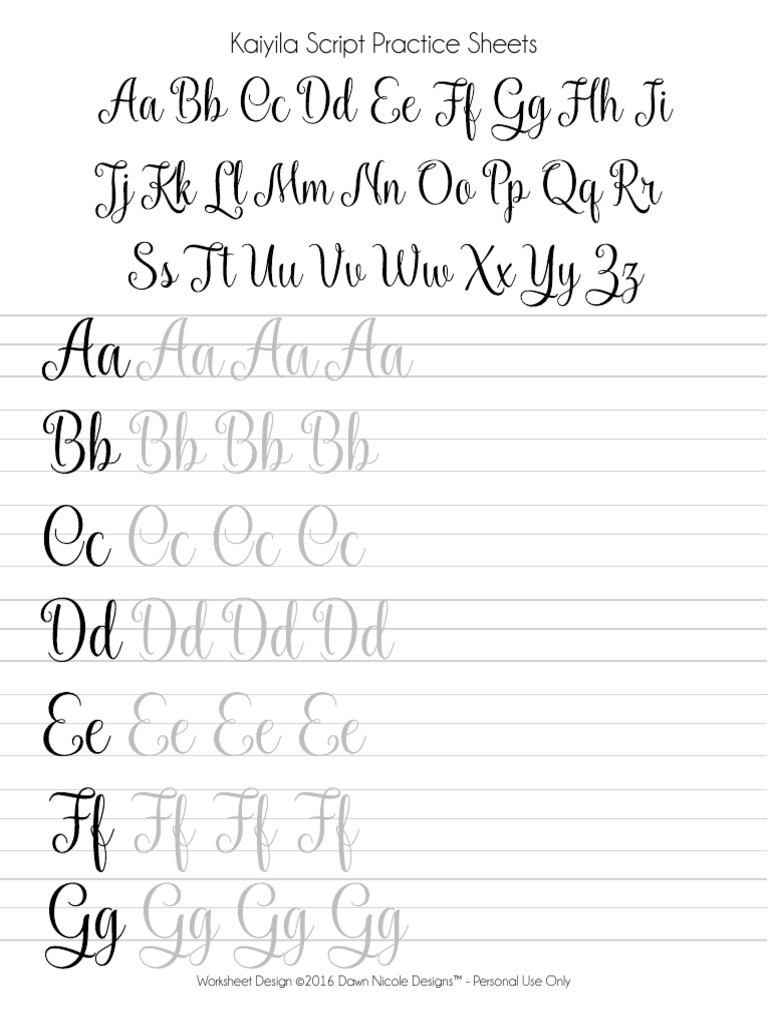 Kaiyila Script Practice Sheets
Aa Bb Cc Dd Ee Ff Gg Hh Ii
Jj Kk Ll Mm Nn Oo Pp Qq Rr
Ss Tt Uu Vv Ww Xx Yy Zz
Aa Aa Aa Aa
Bb Bb Bb Bb
Cc Cc Cc Cc
Dd Dd Dd Dd
Ee Ee Ee Ee
Ff Ff Ff Ff
Gg Gg Gg Gg
Worksheet Design ©2016 Dawn Nicole Designs™ - Personal Use Only